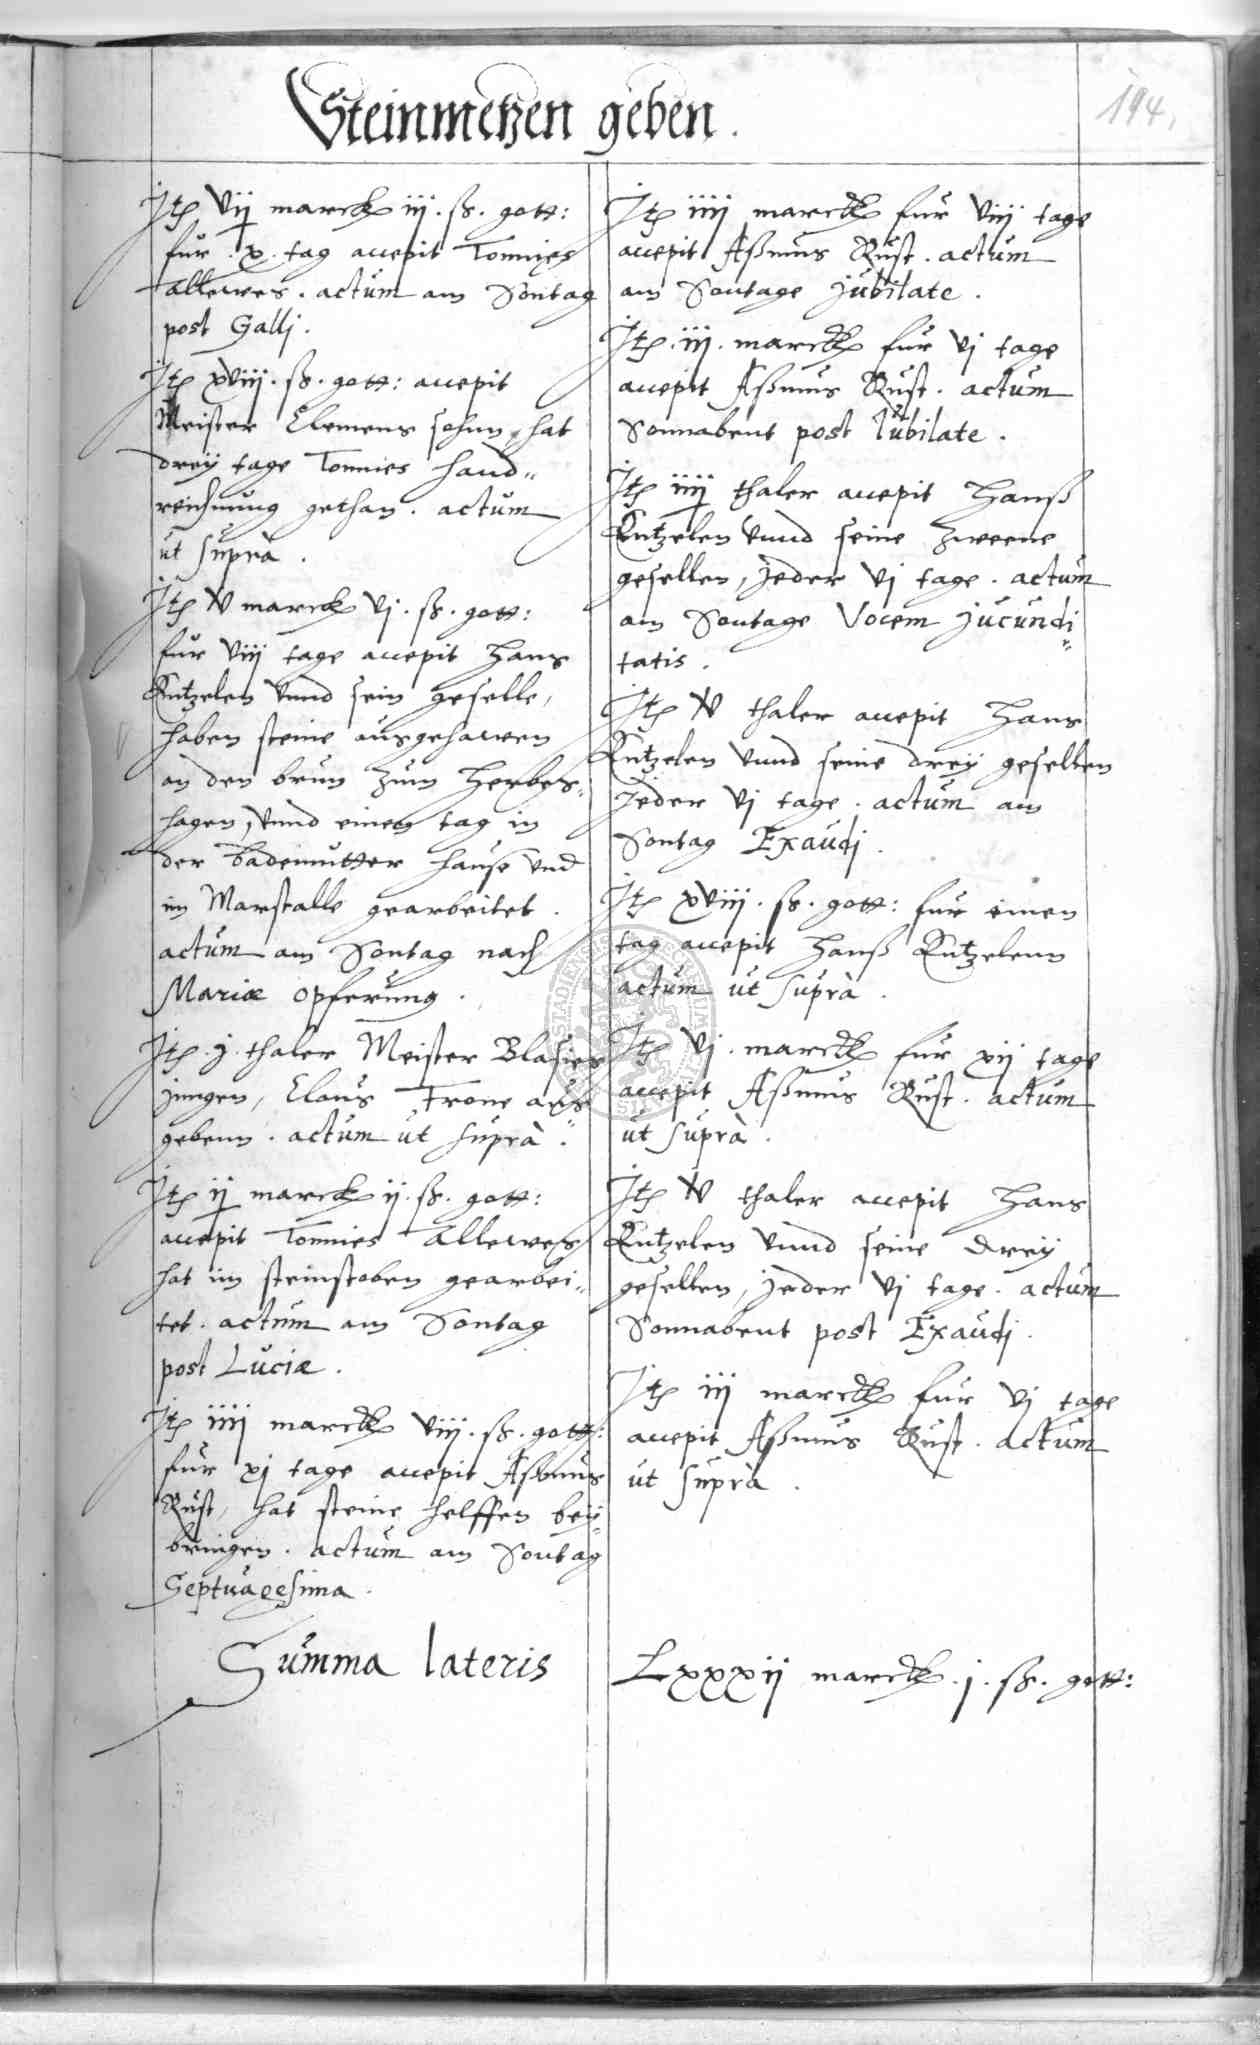 Steinmetzen geben.
194.
Itē vij marck iij. ß. gott:
fur .x. tag accepit Tonnies
Allewes. actum am Sontag
post Galli.
Itē xviij. ß. gott: accepit
Meister Clemens sohnn, hat
dreÿ tage Tonnies hand„
reichnung gethan. actum
ut suprà.
Itē v marck vj. ß. gott:
fur viij tage accepit Hans
Kutzelen vnnd sein geselle,
haben steine ausgehawen
an den brun zum Herbes„
hagen, vnnd einen tag in
der Bademutter hause vnd
im Marstalle gearbeitet.
actum am Sontag nach
Mariæ opferung.
Itē j. thaler Meister Blasies
jungen, Claus Trone aus„
gebenn. actum ut suprà.
Itē ij marck ij. ß. gott:
accepit Tonnies Allewes
hat im steinstoben gearbei„
tet. actum am Sontag
post Luciæ.
Itē iiij marck viij. ß. gott:
fur xj tage accepit Aßmus
Rust, hat steine helffen beÿ„
bringen. actum am Sontag
Septuagesima.
Itē iiij marck fur viij tage
accepit Aßmus Rust. actum
am Sontage Jubilate.
Itē .iij. marck fur vj tage
accepit Aßmus Rust. actum
Sonnabent post Jubilate.
Itē iiij thaler accepit Hanß
Kutzelen vnnd seine zweene
gesellen, jeder vj tage. actum
am Sontage Vocem jucundi„
tatis.
Itē v thaler accepit Hans
Kutzelen vnnd seine dreÿ gesellen
jeder vj tage. actum am
Sontag Exaudi.
Itē xviij. ß. gott: fur einen
tag accepit Hanß Kutzelenn
actum ut suprà.
Itē vj. marck fur xij tage
accepit Aßmus Rust. actum
ut suprà.
Itē v thaler accepit Hans
Kutzelen vnnd seine dreÿ
gesellen, jeder vj tage. actum
Sonnabent post Exaudi.
Itē iij marck fur vj tage
accepit Aßmus Rust. actum
ut suprà.
Summa lateris Lxxxij marck .j. ß. gott: